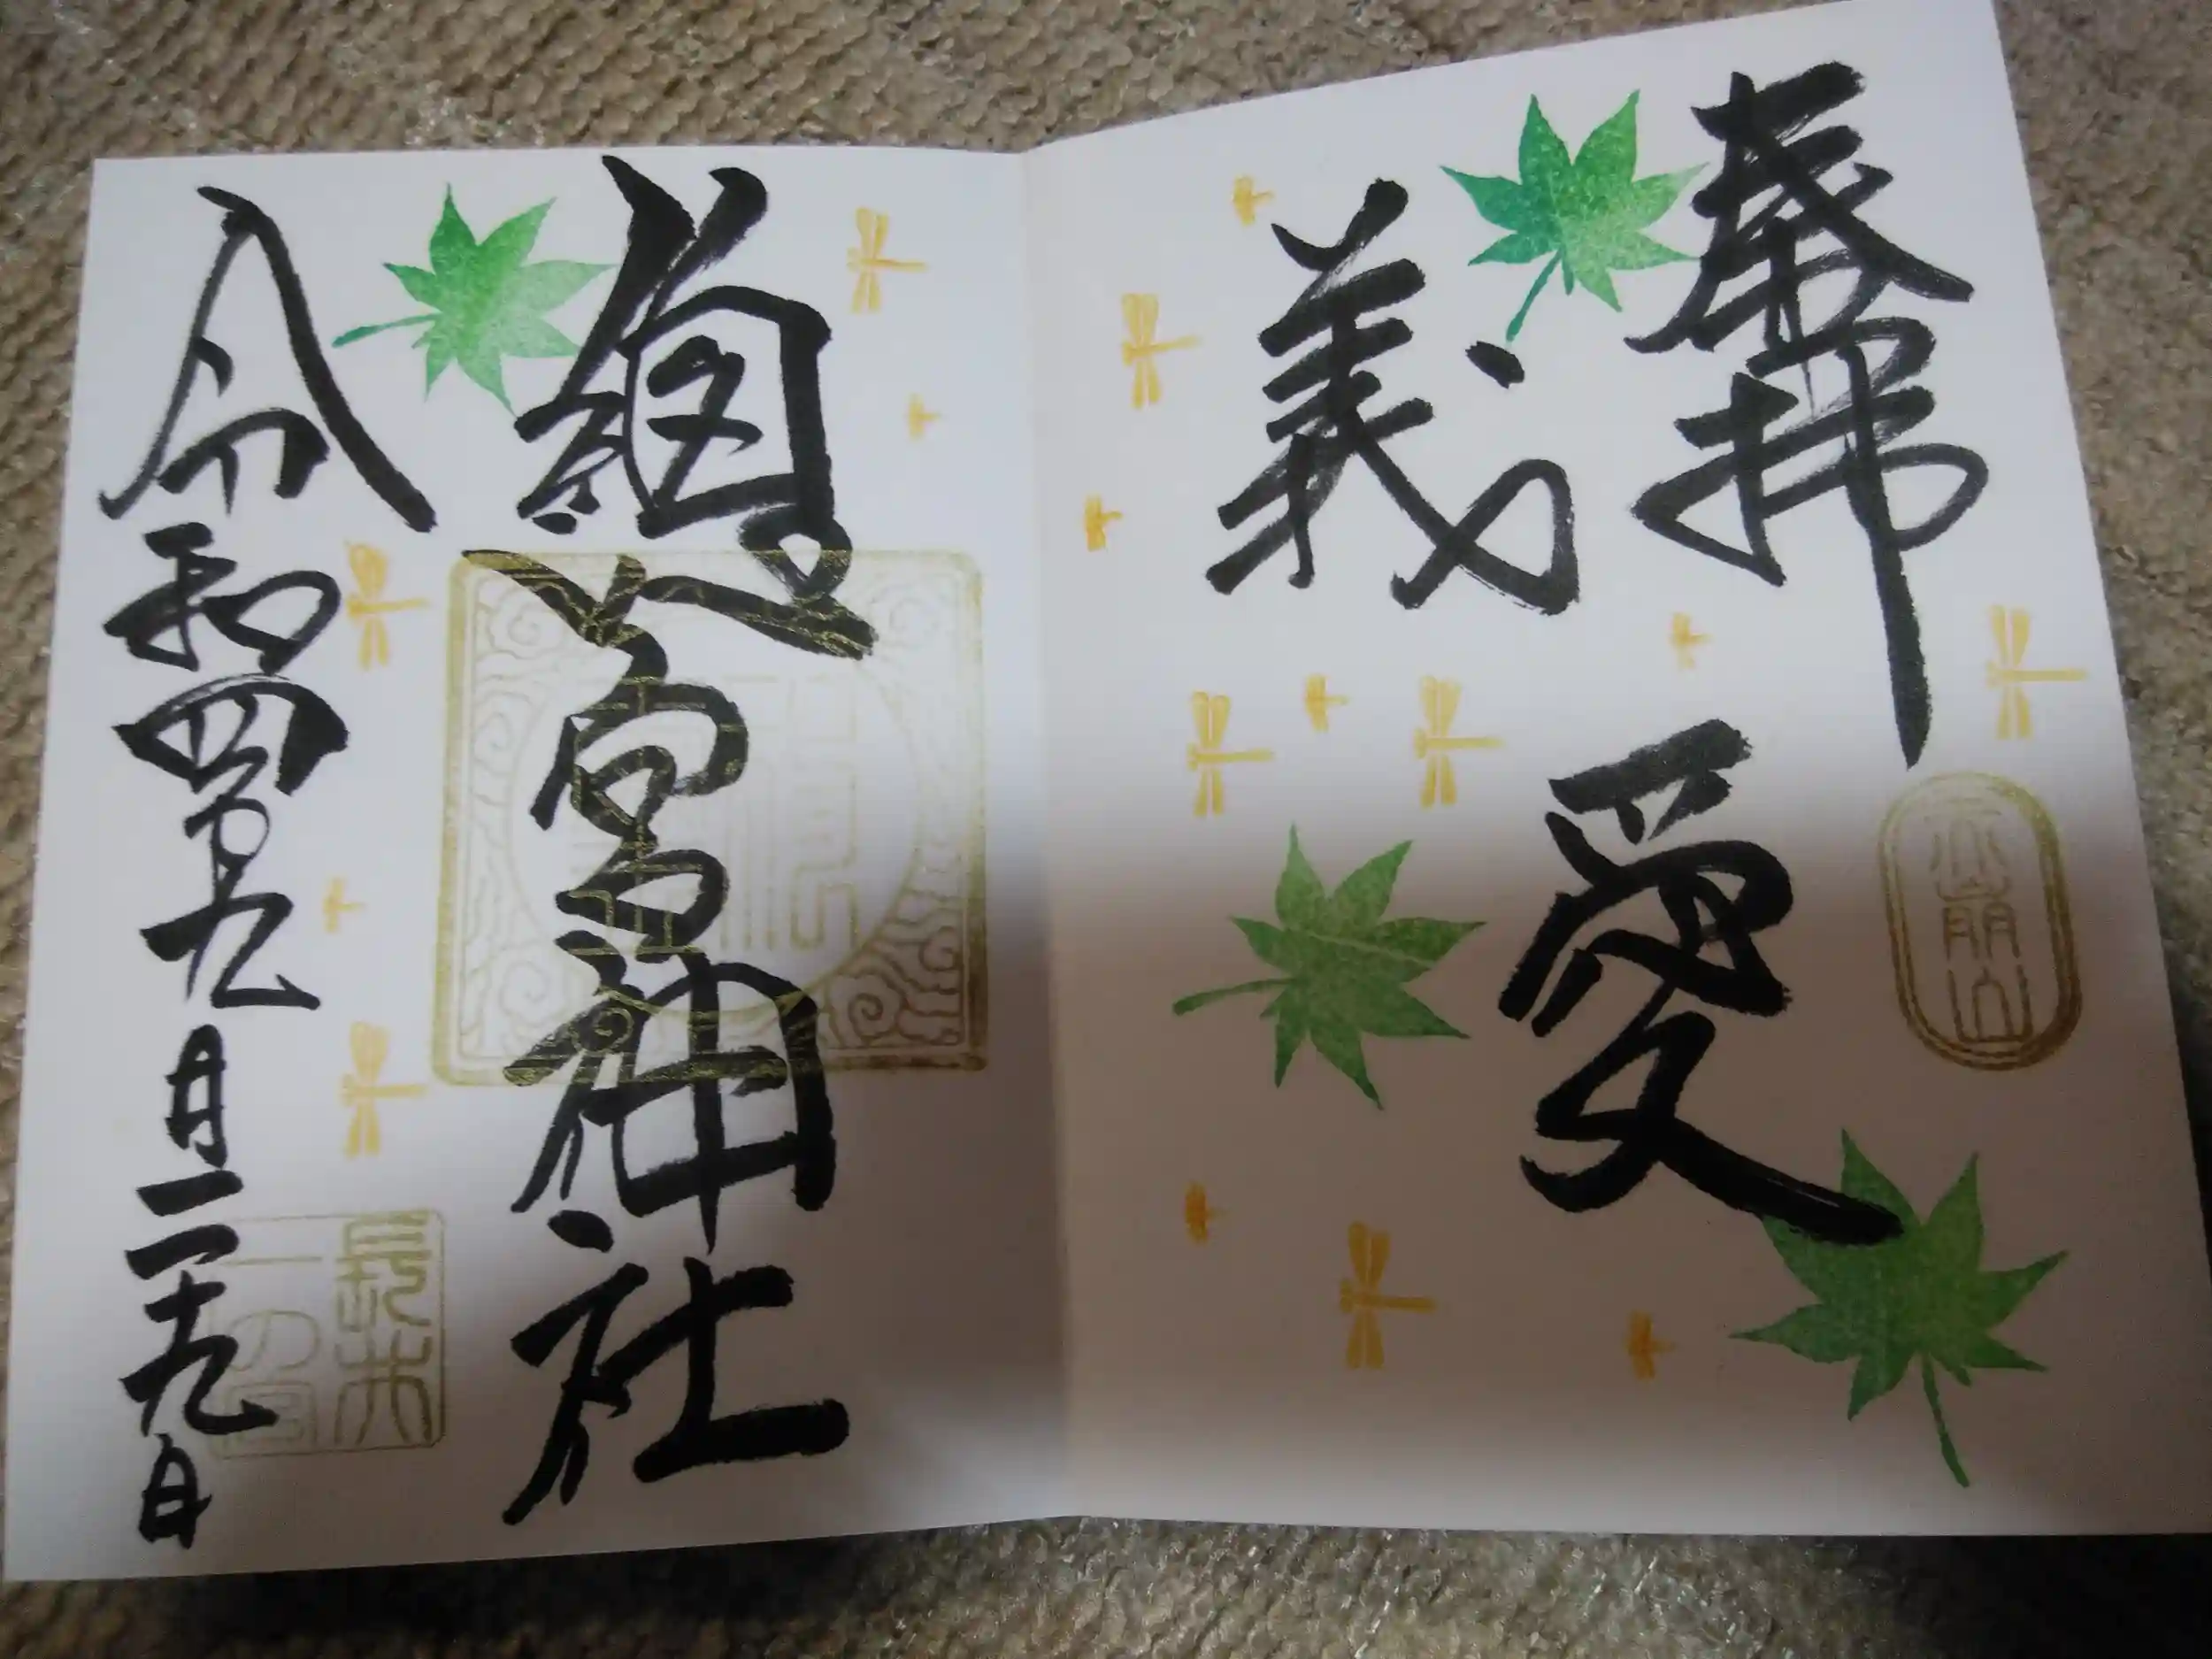 奉拝
赤崩山
義
愛
總宮神社
令和四年九月二十九日
長井
一の宮